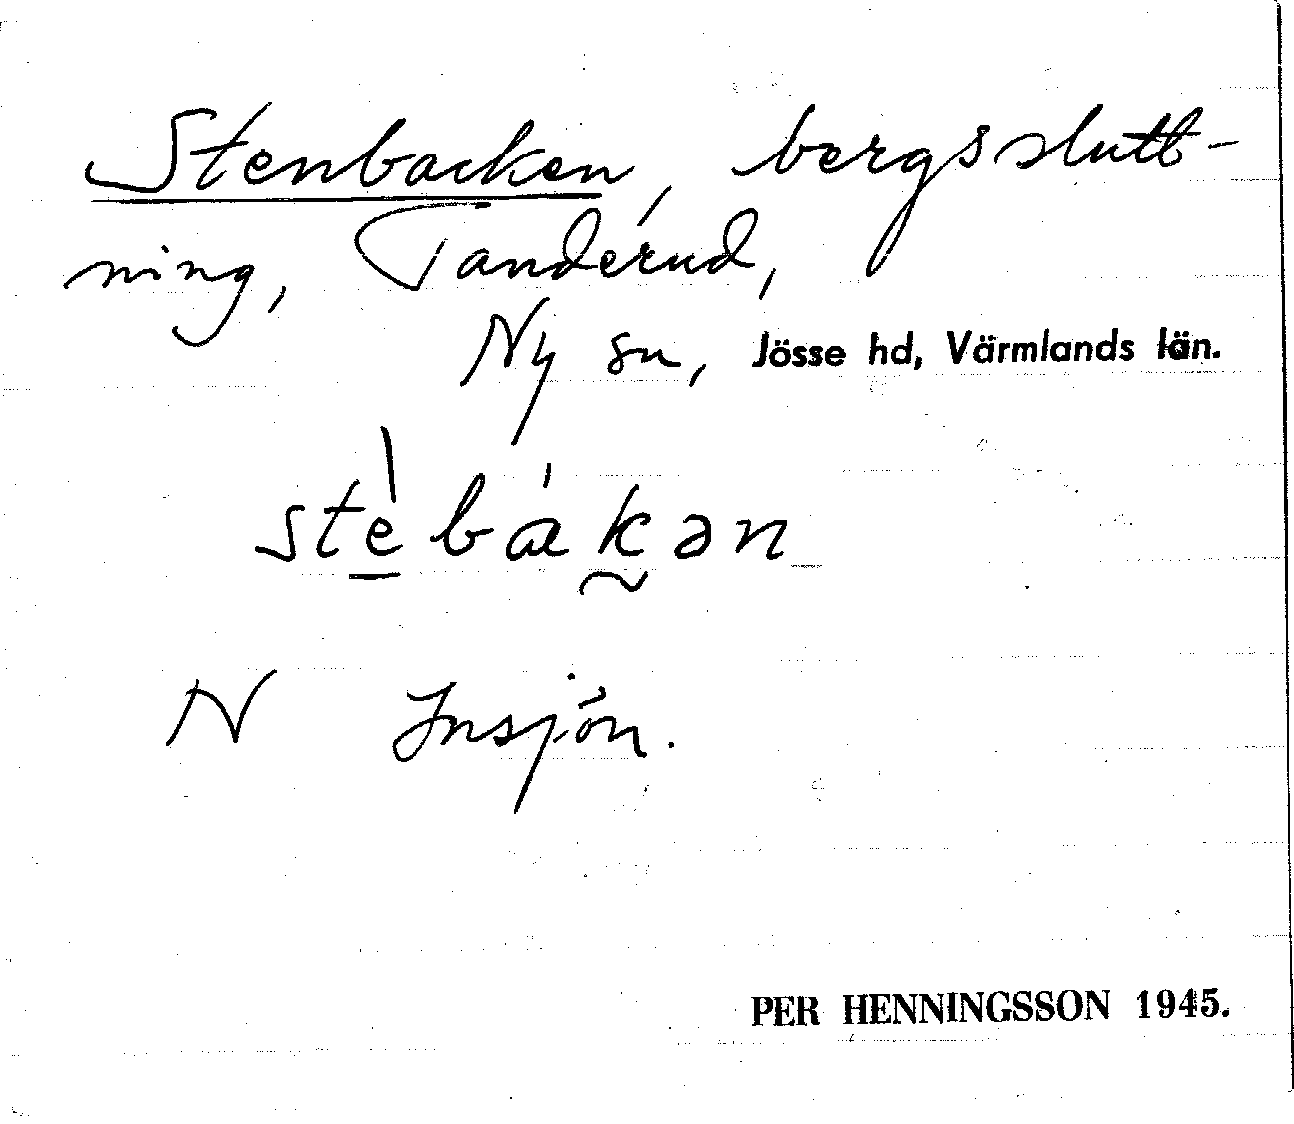 Stenbacken, bergsslutt-
ning, Tanderud,
Ny sn, Jösse hd, Värmlands län.
stè̱bákən
N Insjön.
PER HENNINGSSON 1945.